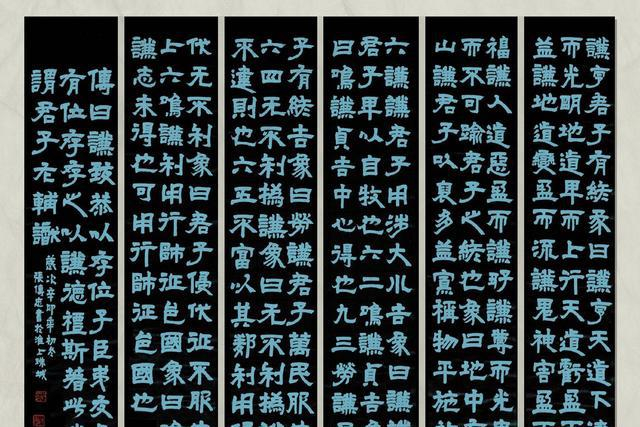 謙亨君子有終彖曰謙亨天道下
而光明地道卑而上行天道虧盈
益謙地道變盈而流謙鬼神害盈
福謙人道惡盈而好謙謙尊而光
而不可踰君子之終也象曰地中
山謙君子以裒多益寡稱物平施
六謙謙君子用涉大川吉象曰謙
君子卑以自牧也六二鳴謙貞吉
曰鳴謙貞吉中心得也九三勞謙
子有終吉象曰勞謙君子萬民服
六四无不利撝謙象曰无不利撝
不違則也六五不富以其鄰利用
伐无不利象曰侵伐征不服
上六鳴謙利用行師征邑國象曰
謙志未得也可用行師征邑國也
傳曰謙致恭以存位子臣
有位存存心以謙德禮斯著此
謂君子在輔
歲次辛卯年初冬